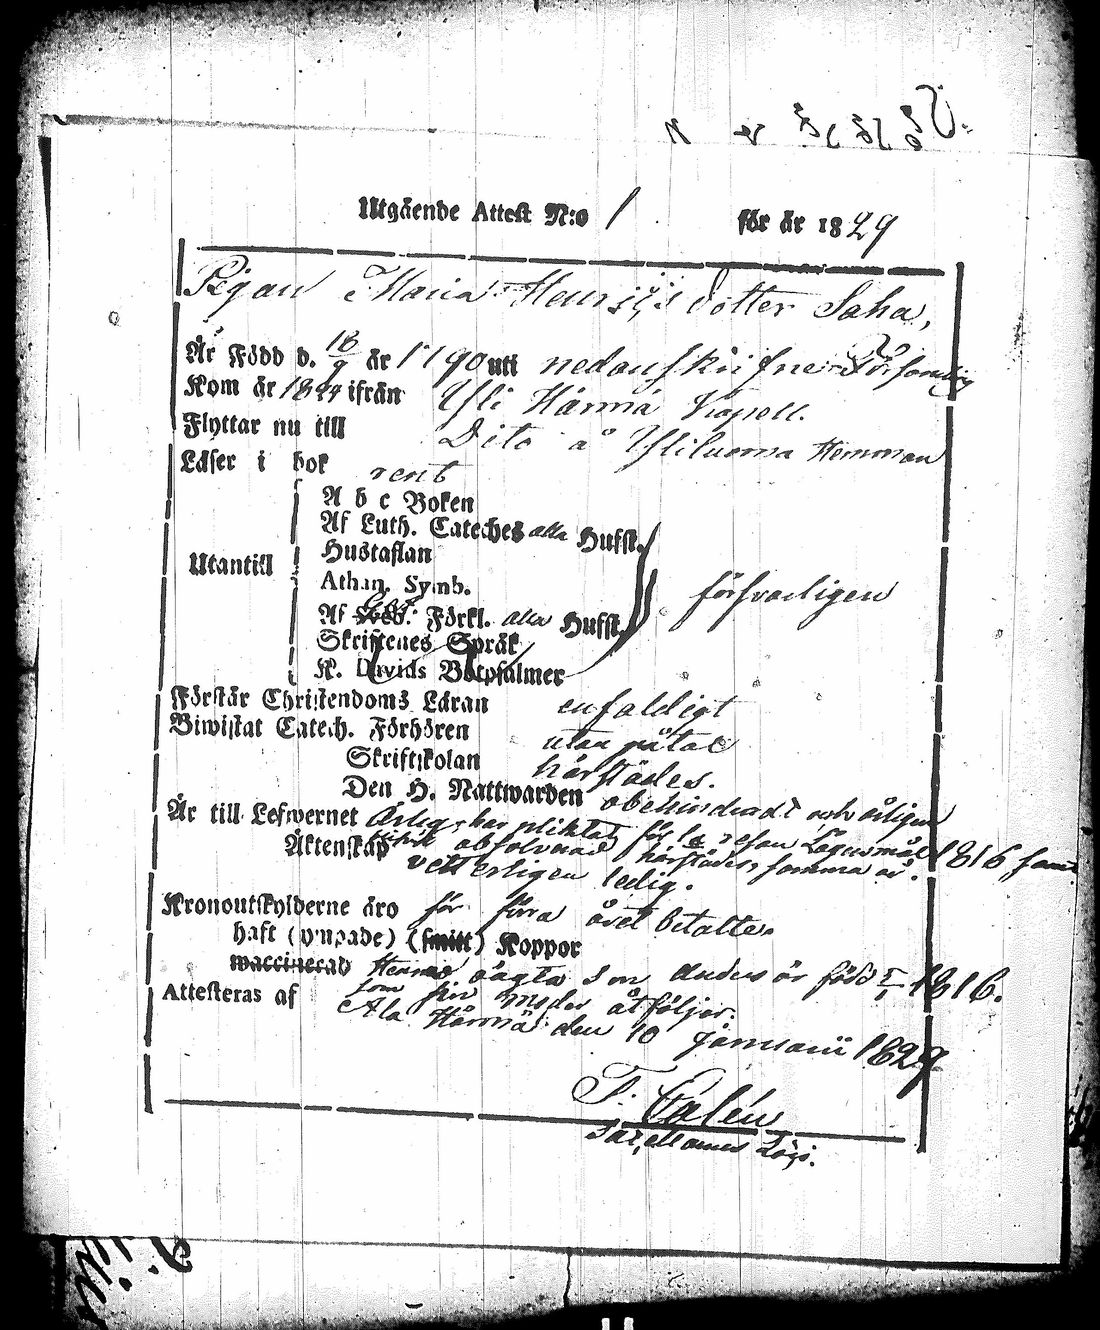 Utgående Attest N:o 1 för år 1829
Pigan Maria Henrijs dotter Saha,
Är Född d. 18/9 år 1790 uti nedanskrifne
Kom år 1824 ifrån Ylihärmä Kapell.
Flyttar nu till Dito å Yliluoma Hemman
Läser i bok rent
A b c Boken
Af Luth. Cateches alla Hufst.
Hustaflan
Utantill
Athan. Symb.
försvarligen
Af Förkl. alla Hufst.
Skriftenes Språk
K. Davids Botpsalmer
Förstår Christendoms Läran enfaldigt
Biwistat Catech. Förhören utan påtal
Skriftskolan härstädes.
Den H. Nattwarden obehindradt och årligen
Är till Lefwernet ärlig, har pliktat för 1a resan Lägersmål 1816 samt
absolverad härstädes, samma år.
Äktenskap vetterligen ledig.
Kronoutskylderne äro för förra året betalte.
haft (ympade) (smitt) Koppor
waccinerad Hennes oägta Son född 1816.
som sin moder åtföljer.
Attesteras af Ala Härmä den 10 Januarii 1829